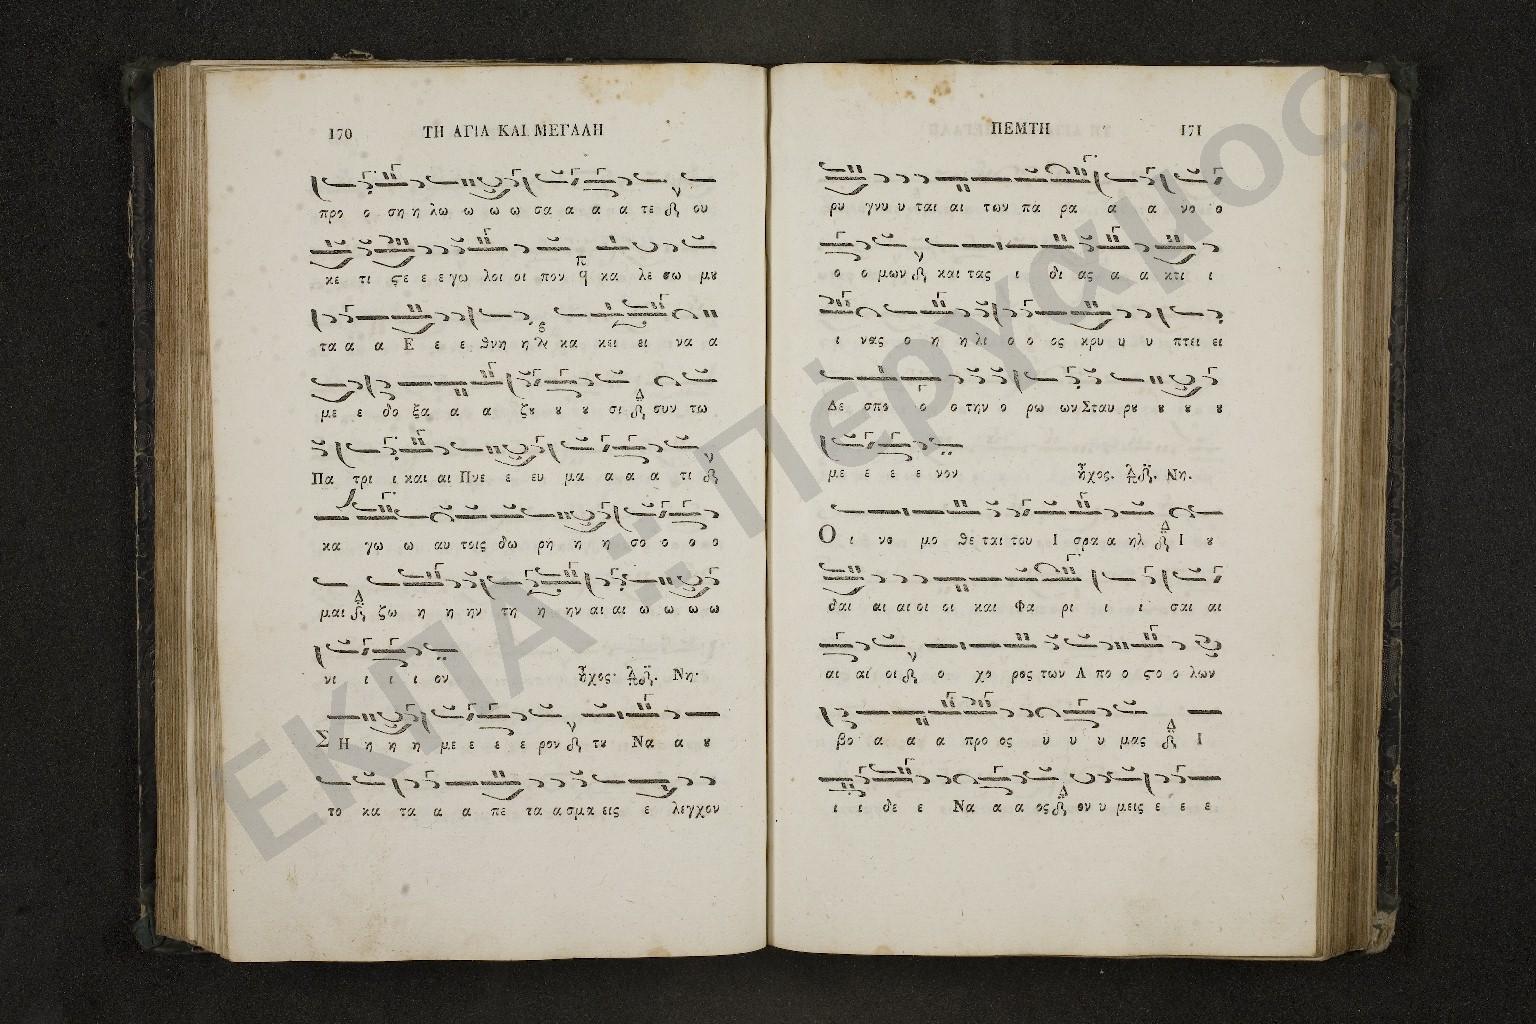 170 ΤΗ ΑΓΙΑ ΚΑΙ ΜΕΓΑΛΗ
προ ο ση η λω ω ω ω σα α α α τε ου
κε τι ϛε ε ε γω λοι οι πον κα λε σω μȣ
τα α α Ε ε ε θνη η κα κει ει να α
με ε δο ξα α α ζȣ ȣ ȣ σι συν τω
Πα τρι ι και αι Πνε ε ευ μα α α α τι
κα γω ω αυ τοις δω ρη η η σο ο ο ο
μαι ζω η η ην τη η ην αι αι ω ω ω ω
νι ι ι ι ον ἦχος. Νη.
ΣΗ η η η με ε ε ε ρον τȣ Να α ȣ
το κα τα α α πε τα α σμα εις ε λεγχον
ΠΕΜΤΗ 171
ρυ γνυ υ ται αι των πα ρα α α νο ο
ο ο μων και τας ι δι ας α α κτι ι
ι νας ο η η λι ο ο ος κρυ υ υ πτει ει
Δε σπο ο ο την ο ρω ων Σταυ ρȣ ȣ ȣ ȣ
με ε ε ε νον ἦχος. Νη.
Ο ι νο μο θε ται του Ι σρα α ηλ Ι ȣ
δαι αι αι οι οι και Φα ρι ι ι σαι αι
αι αι οι ο χο ρος των Α πο ο ϛο ο λων
βο α α α προ ος υ υ υ μας Ι
ι ι δε ε Να α α ος ον υ μεις ε ε ε
ΕΚΠΑ :: Πέργαμος